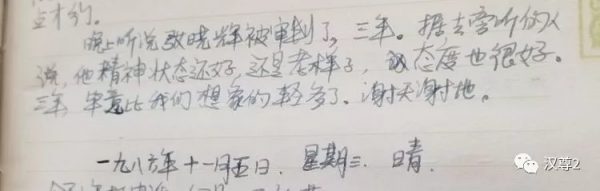 晚上听说敬晓辉被审判了，三年。据去旁听的人
说，他精神状态还好，还是老样子，态度也很好。
三年，毕竟比我们想象的轻多了。谢天谢地。
一九八六年十一月五日．星期三．晴．
汉尊2